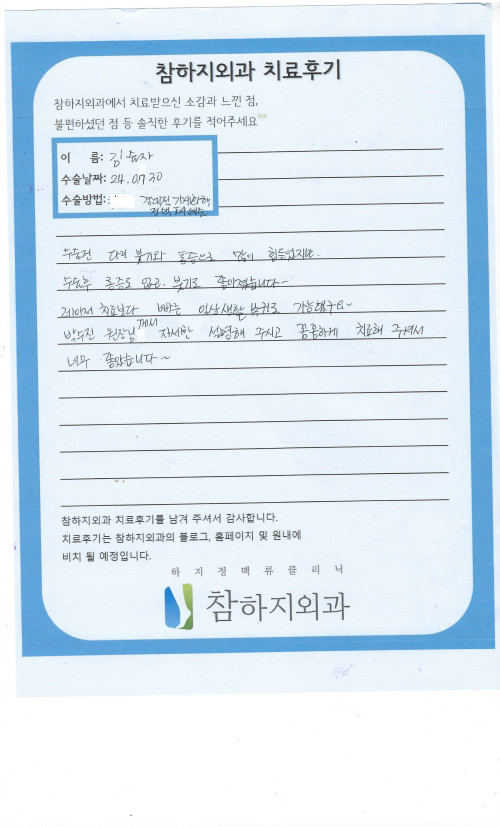 참하지외과 치료후기
참하지외과에서 치료받으신 소감과 느낀 점,
불편하셨던 점 등 솔직한 후기를 적어주세요
이 름: 김
수술날짜: 24.07.30
수술방법:
정맥
수술전 다리 붓기와 통증으로 많이 힘들었지만.
수술후 통증도 없고. 붓기도 좋아졌습니다~
레이저 치료보다 빠른 일상생활 복귀도 가능했구요~
박수진 원장님께서 자세한 설명해 주시고 꼼꼼하게 치료해 주셔서
너무 좋았습니다~
참하지외과 치료후기를 남겨 주셔서 감사합니다.
치료후기는 참하지외과의 블로그, 홈페이지 및 원내에
비치 될 예정입니다.
하지정맥류클리닉
참하지외과